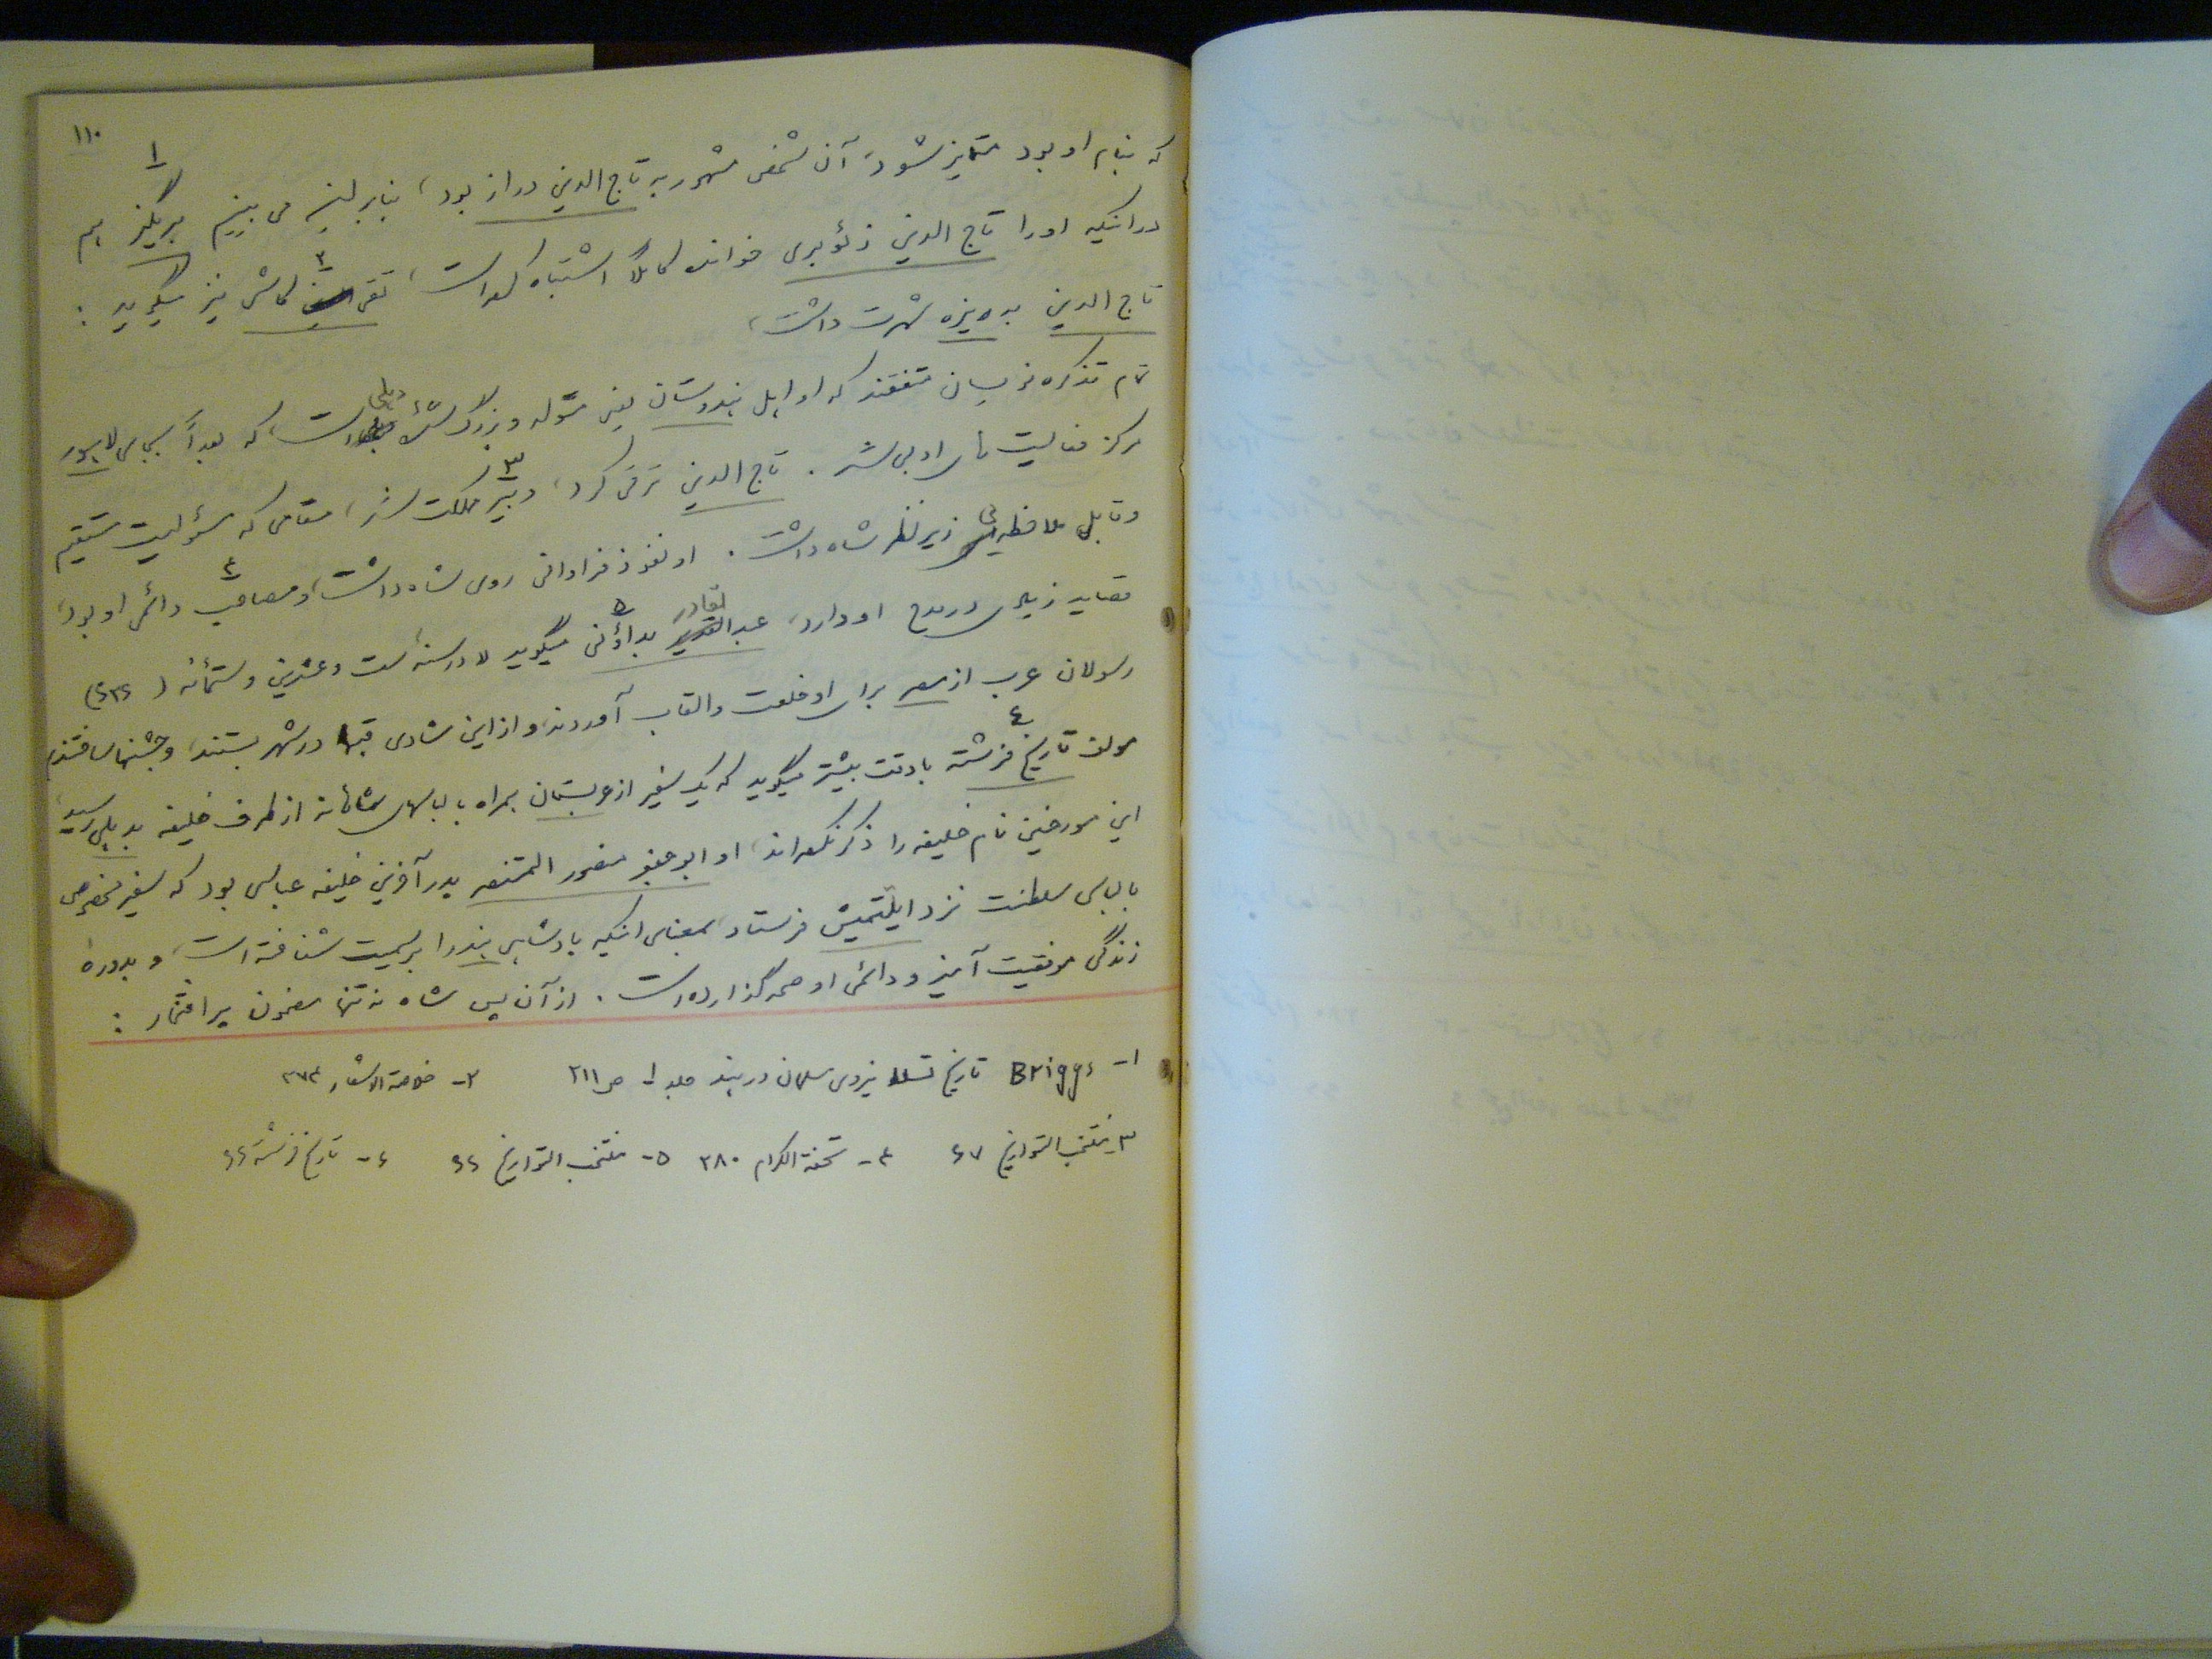 ۱۱۰
که بنام او بود متمایز شود، آن شخص مشهور به تاج الدین دراز بود، بنابر این می بینیم بریگز ۱ هم
در اینکه او را تاج الدین زئوبری خوانده کاملاً اشتباه کرده است، تقی ۲ کاشی نیز میگوید :
تاج الدین به ریزه شهرت داشت،
تمام تذکره نویسان متفقند که او اهل هندوستان یعنی متولد و بزرگ شده دهلی است، که بعداً بجای لاهور
مرکز فعالیت های ادبی شد . تاج الدین ترقی کرد، و دبیر ۳ مملکت شد، مقامی که مسؤلیت مستقیم
و قابل ملاحظه ئی زیر نظر شاه داشت . او نفوذ فراوانی روی شاه داشت، و مصاحب ۴ دائمی او بود،
قصاید زیادی در مدح او دارد، عبدالقادر بداؤنی ۵ میگوید «در سنه ست و عشرین و ستمائه (۶۲۶)
رسولان عرب از مصر برای او خلعت و القاب آوردند، و از این شادی قبها در شهر بستند، و جشنها ساختند»
مولف تاریخ فرشته ۶ با دقت بیشتر میگوید که یک سفیر از عربستان همراه با لباسهای شاهانه از طرف خلیفه به دهلی رسید،
این مورخین نام خلیفه را ذکر نکرده اند، او ابو جعفر منصور المستنصر پدر آخرین خلیفه عباسی بود که سفیر مخصوصی
با لباس سلطنت نزد ایلتتمیش فرستاد، بمعنای اینکه پادشاهی هند را برسمیت شناخته است، و به دوره
زندگی موفقیت آمیز و دائمی او صحه گذارده است . از آن پس شاه نه تنها مضمون پر افتخار :
۱- Briggs تاریخ تسلط نیروی مسلمان در هند جلد ۱ ص ۲۱۱ ۲- خلاصة الاشعار ۳۷۴
۳- منتخب التواریخ ۶۷ ۴- تحفة الکرام ۲۸۰ ۵- منتخب التواریخ ۶۶ ۶- تاریخ فرشته ۶۶